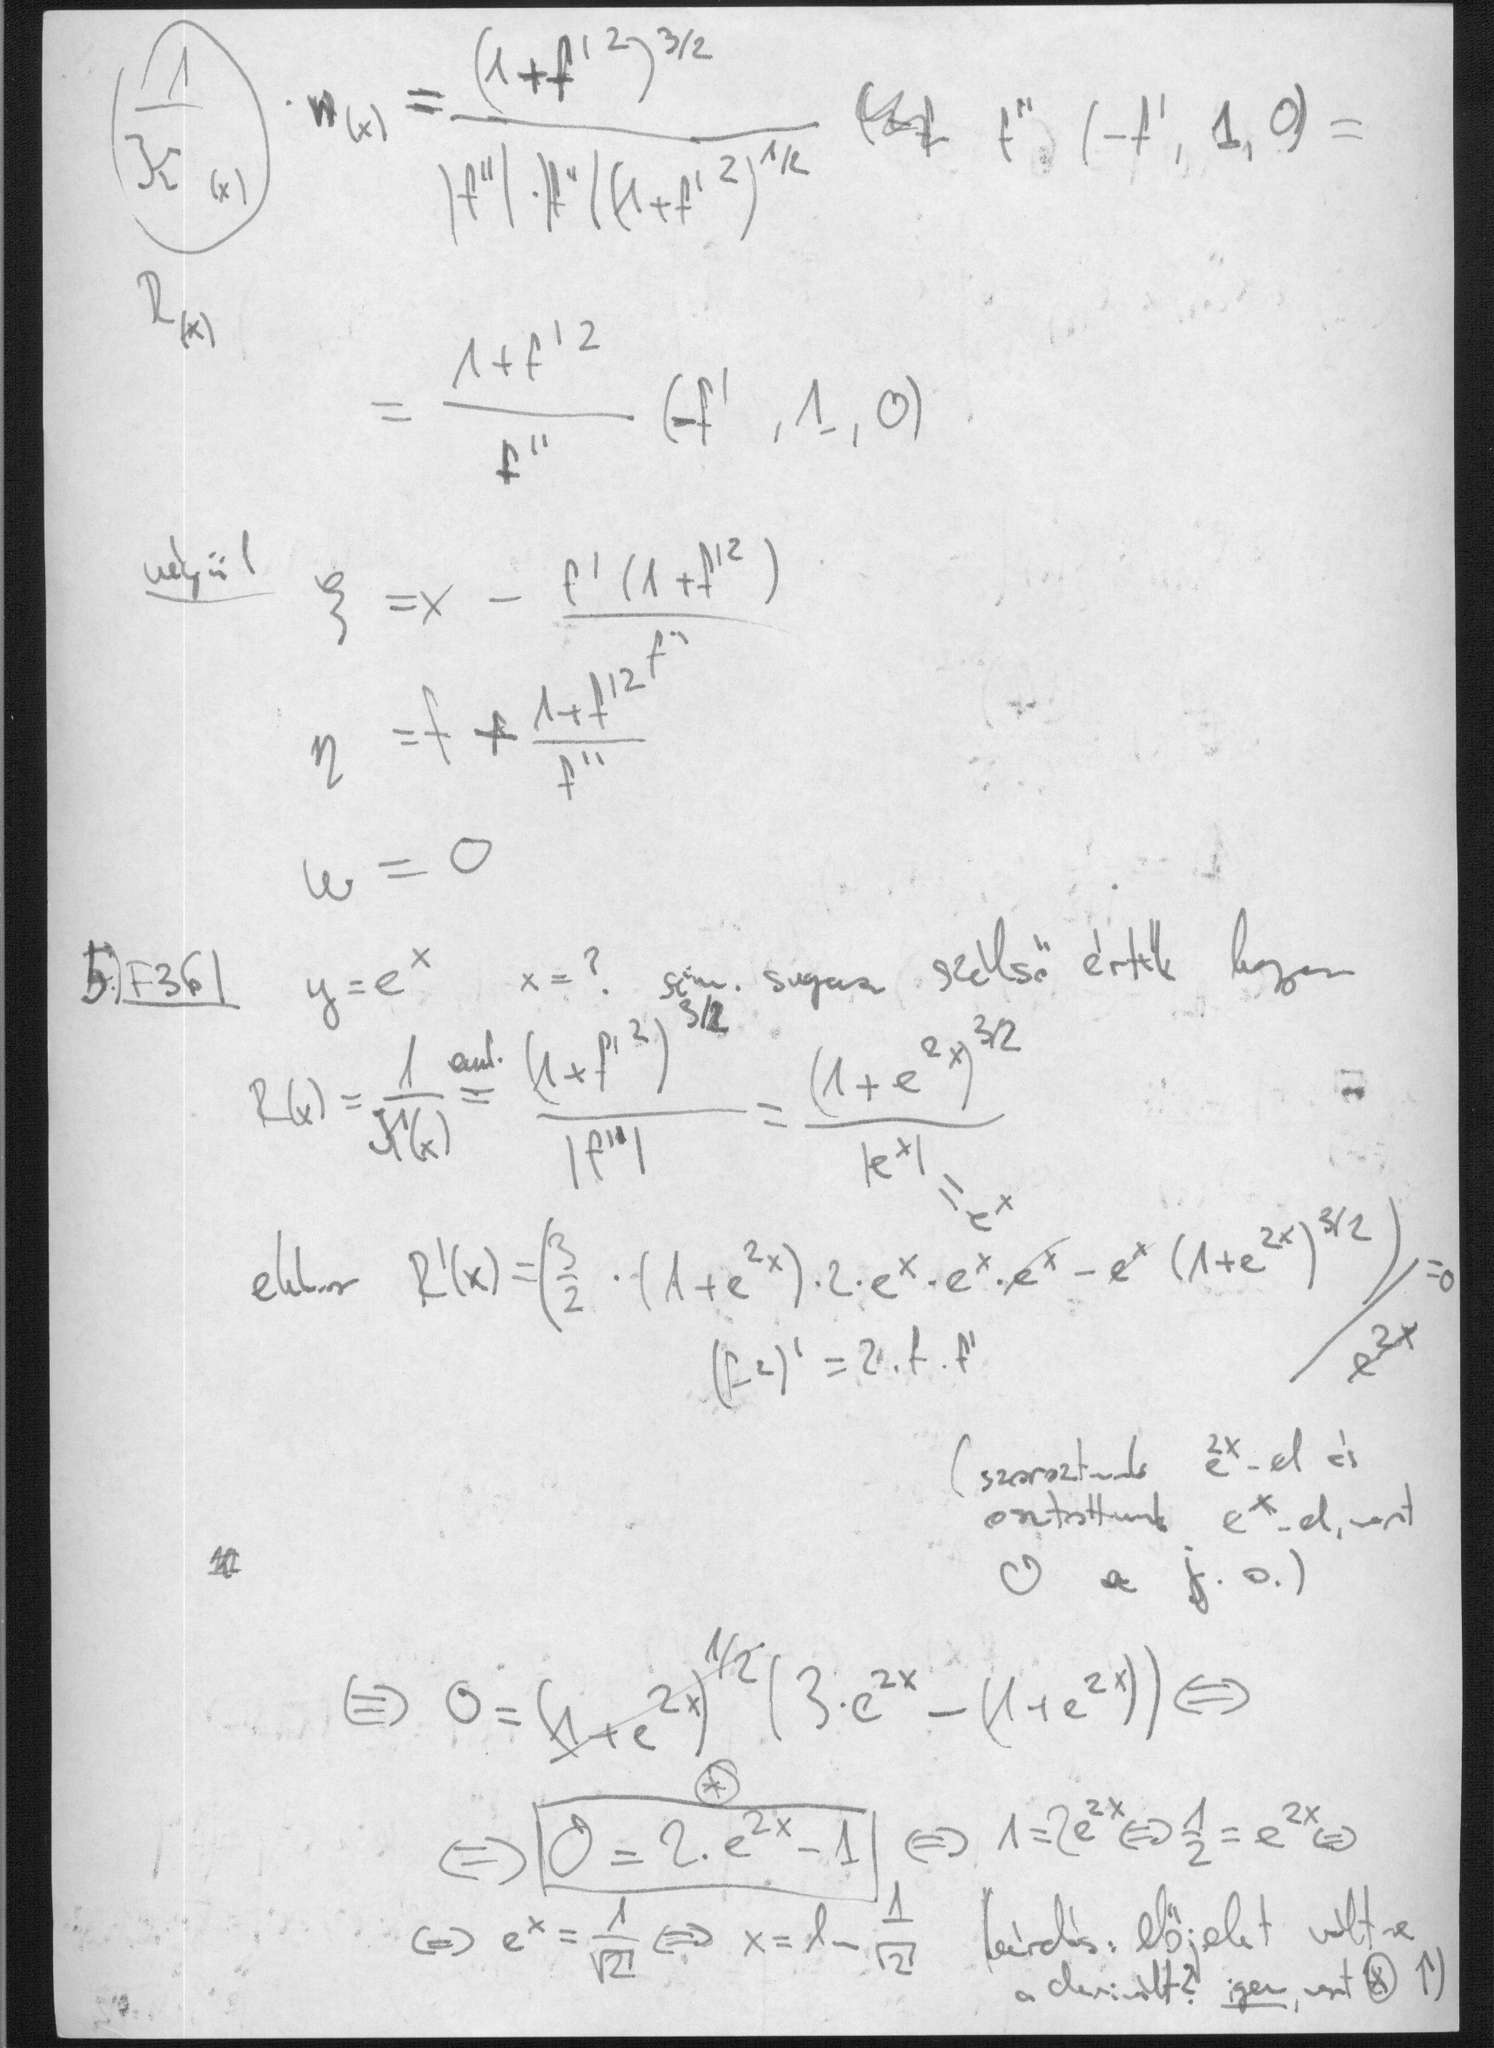 1/ϰ(x) · n(x) = (1+f'²)^3/2 / |f''|·|f''|(1+f'²)^1/2 f'' (-f', 1, 0) =
R(x)
= 1+f'² / f'' (-f', 1, 0)
végül ξ = x - f'(1+f'²) / f''
η = f + 1+f'² / f''
w = 0
5) F36 y = e^x x = ? sim. sugara szélső érték legyen
R(x) = 1/ϰ(x) = (1+f'²)^3/2 / |f''| = (1+e^2x)^3/2 / |e^x|
= e^x
ekkor R'(x) = (3/2 · (1+e^2x) · 2 · e^x · e^x · e^x - e^x (1+e^2x)^3/2) / e^2x = 0
(f²)' = 2 · f · f'
(szoroztunk e^2x-el és
osztottunk e^x-el, mert
0 a j. o.)
⇔ 0 = (1+e^2x)^1/2 (3·e^2x - (1+e^2x)) ⇔
(*)
⇔ 0 = 2·e^2x - 1 ⇔ 1 = 2e^2x ⇔ 1/2 = e^2x ⇔
⇔ e^x = 1/√2 ⇔ x = ln 1/√2 (kérdés: előjelet vált-e
a derivált? igen, mert (*) ↑)